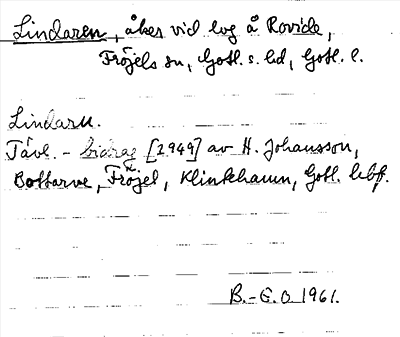 Lindaren, åker vid log å Rovide,
Fröjels sn, Gotl. s. hd, Gotl. l.
Lindarn.
Tävl. - bidrag [1949] av H. Johansson,
Bottarve, Fröjel, Klintehamn, Gotl.
B.-E.O 1961.